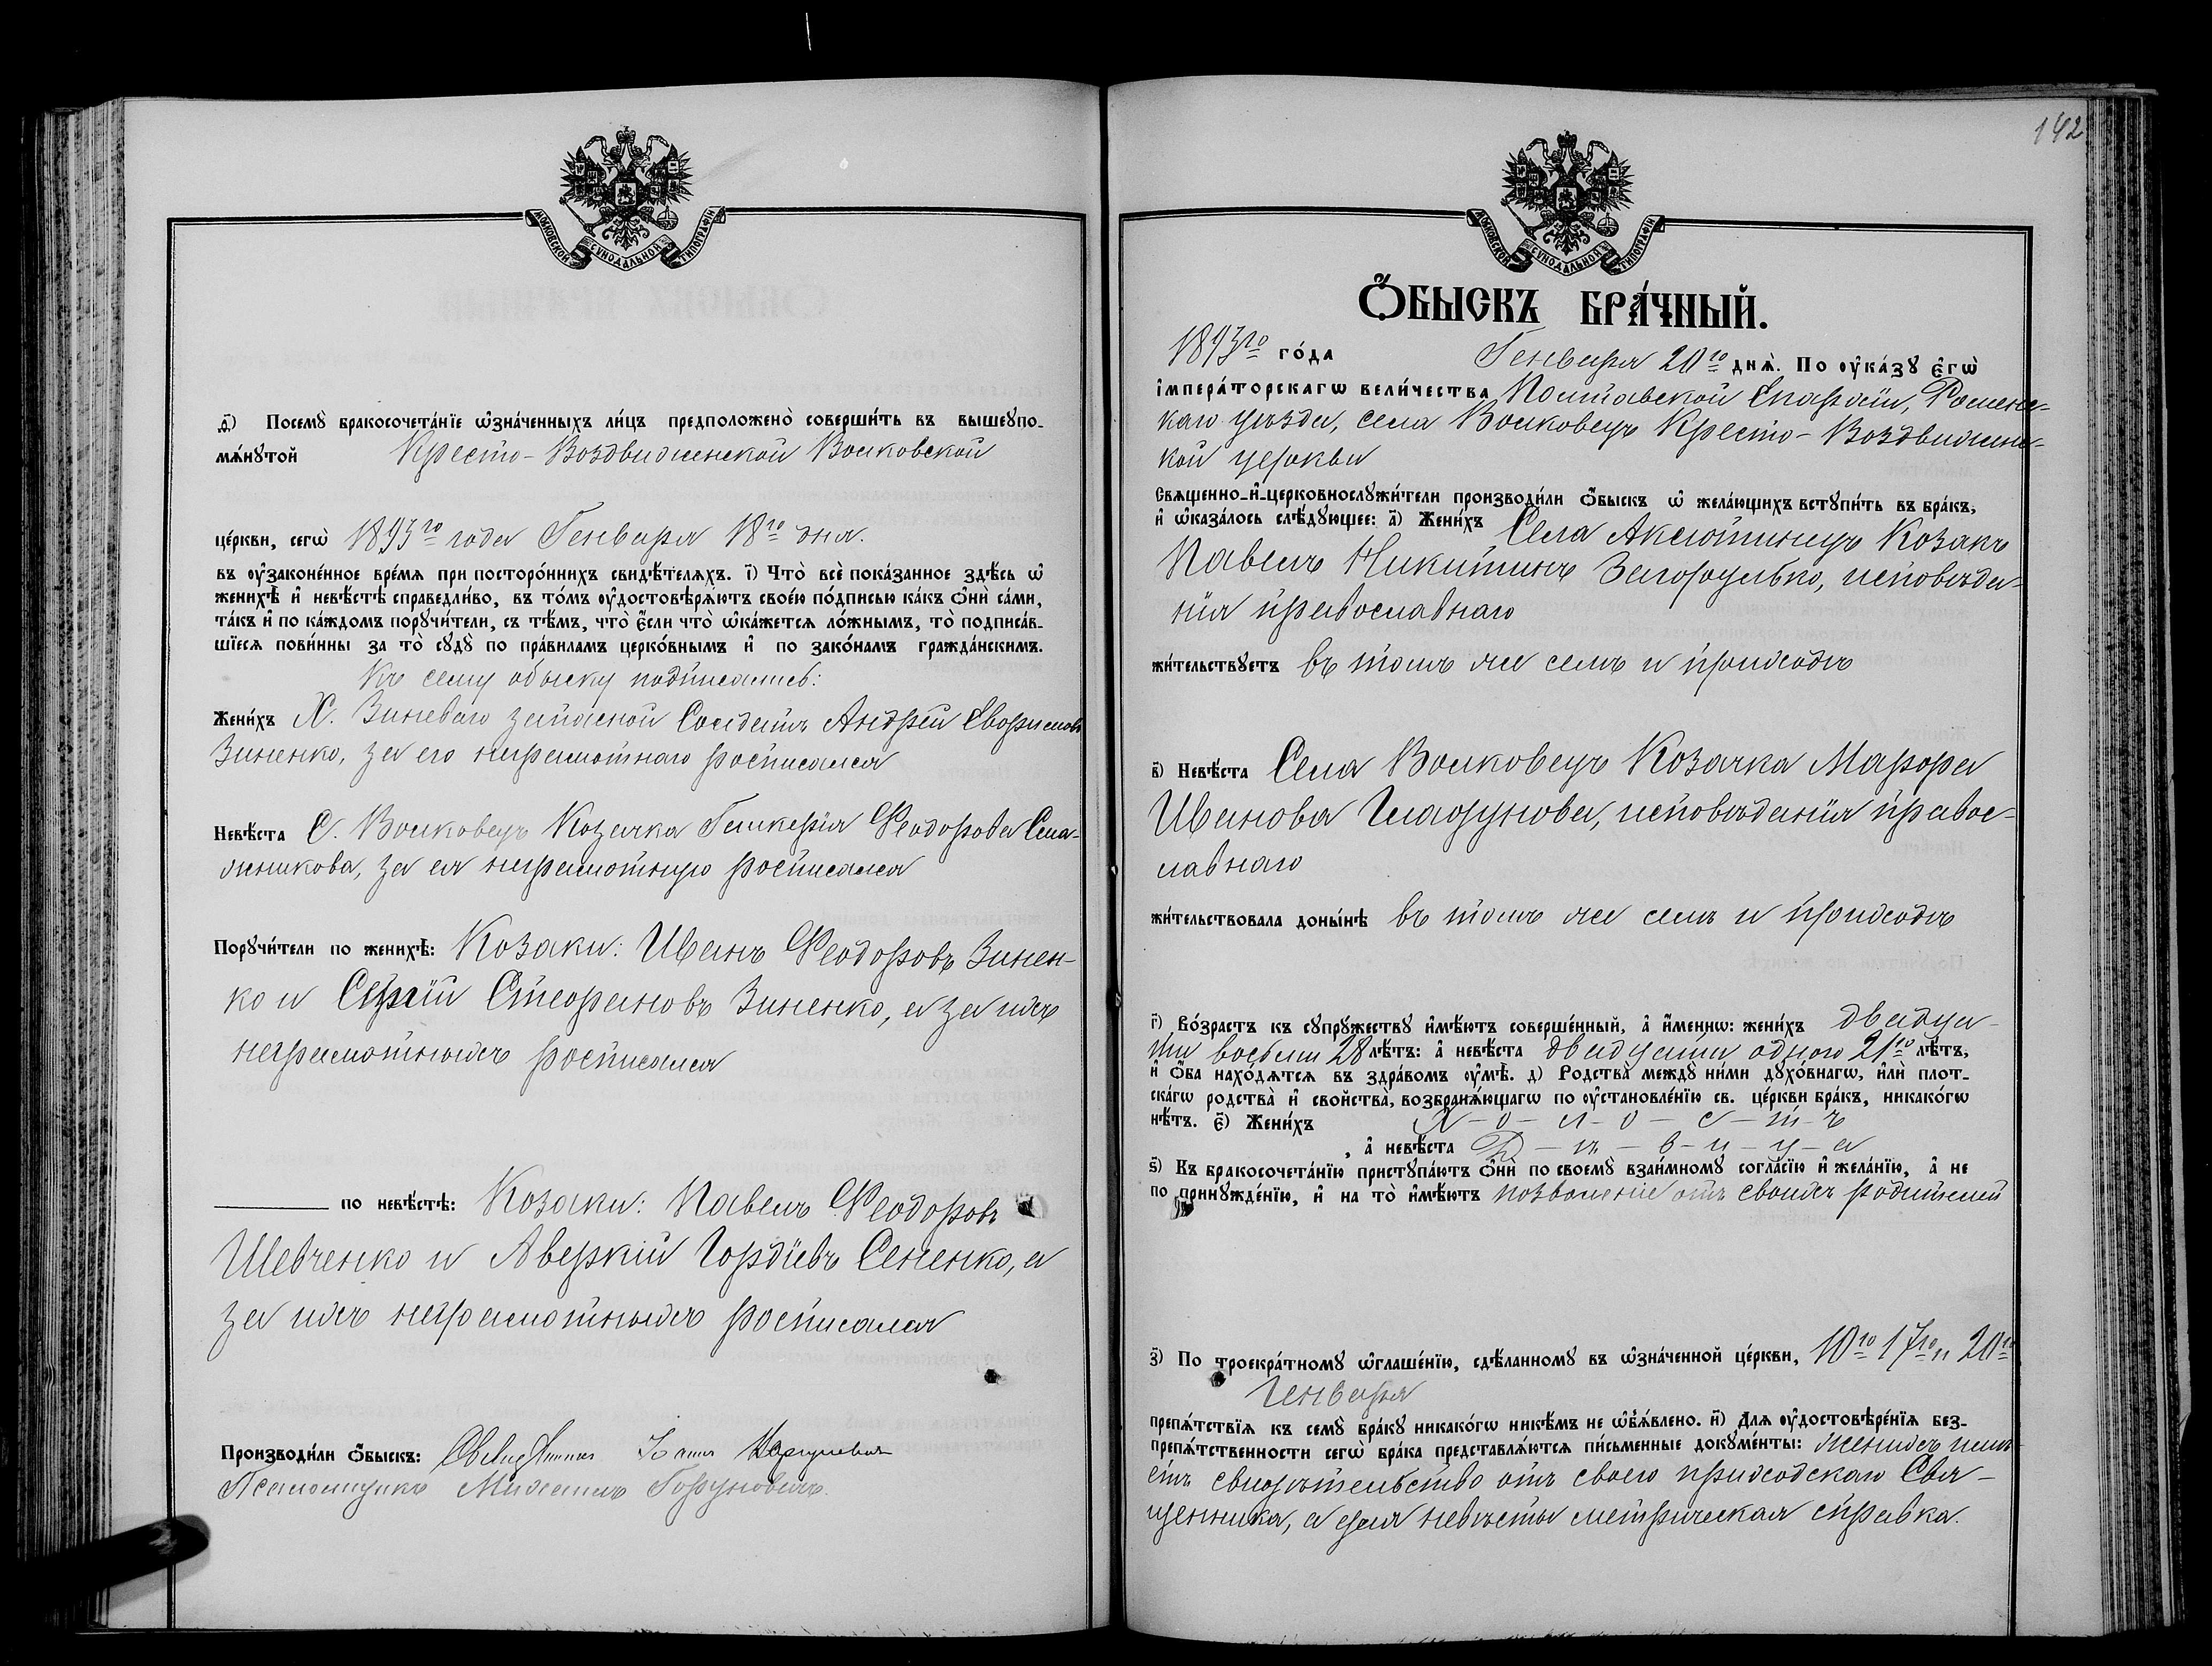 МОСКОВСКОЙ СѴНОДАЛЬНОЙ ТИПОГРАФІИ
д҃) Посемꙋ̀ бракосочета́нїе ѡ҆зна́ченныхъ ли́цъ предположено̀ соверши́ть въ вышеꙋпо-
мѧ́нꙋтой Кресто-Воздвиженской Волковской
це́ркви, сегѡ̀ 1893го года Генваря 18го дня.
въ ᲂу҆зако́ненное вре́мѧ при посторо́ннихъ свидѣ́телѧхъ. і҃) Что̀ всѐ пока́занное здѣ́сь ѡ҆
женихѣ̀ и҆ невѣ́стѣ справедли́во, въ то́мъ ᲂу҆достовѣрѧ́ютъ свое́ю по́дписью ка́къ ѻ҆нѝ са́ми,
та́къ и҆ по ка́ждомъ порꙋчи́тели, съ тѣ́мъ, что̀ є҆́сли что̀ ѡ҆ка́жетсѧ ло́жнымъ, то̀ подписа́в-
шїесѧ пови́нны за то̀ сꙋдꙋ̀ по пра́виламъ церко́внымъ и҆ по зако́намъ гражда́нскимъ.
Къ сему обыску подписались:
Жени́хъ Х. Зиневаго запасной Солдатъ Андрей
Зиненко, за его неграмотнаго росписался
Невѣ́ста С. Волковецъ Козачка Гликерія Феодорова Сла-
жникова, за ея неграмотную росписался
Порꙋчи́тели по женихѣ̀: Козаки: Иванъ Феодоровъ Зинен-
ко и Сергій Стефановъ Зиненко, а за ихъ
неграмотныхъ росписался
по невѣ́стѣ: Козаки: Павелъ Феодоровъ
Шевченко и Аверкій Гордіевъ Сененко, а
за ихъ неграмотныхъ росписался
Производи́ли ѻ҆́быскъ:
Псаломщикъ Михаилъ
142
МОСКОВСКОЙ СѴНОДАЛЬНОЙ ТИПОГРАФІИ
Ѻ҆́БЫСКЪ БРА́ЧНЫЙ.
1893го го́да Генваря 20го днѧ̀. По ᲂу҆ка́зꙋ є҆гѡ̀
і҆мпера́торскагѡ вели́чества Полтавской Епархіи, Роменс-
каго уѣзда, села Волковецъ Кресто-Воздвиженс-
кой церкви
Свѧщенно-и҆-церковнослꙋжи́тели производи́ли ѻ҆́быскъ ѡ҆ жела́ющихъ встꙋпи́ть въ бра́къ,
и҆ ѡ҆каза́лось слѣ́дꙋющее: а҃) Жени́хъ Села Аксютинецъ Козакъ
Павелъ Никитинъ Загородько, исповѣда-
нія православнаго
жи́тельствꙋетъ въ томъ же селѣ и приходѣ
в҃) Невѣ́ста Села Волковецъ Козачка Марфа
Иванова исповѣданія правос-
лавнаго
жи́тельствовала доны́нѣ въ томъ же селѣ и приходѣ
г҃) Во́зрастъ къ сꙋпрꙋ́жествꙋ и҆мѣ́ютъ соверше́нный, а҆ и҆́меннѡ: жени́хъ двадца-
ти восьми 28 лѣ́тъ: а҆ невѣ́ста двадцати одного 21го лѣ́тъ,
и҆ ѻ҆́ба нахо́дѧтсѧ въ здра́вомъ ᲂу҆мѣ̀. д) Родства̀ междꙋ̀ ни́ми дꙋхо́внагѡ, и҆лѝ плот-
ска́гѡ родства̀ и҆ свойства̀, возбранѧ́ющагѡ по ᲂу҆становле́нїю св. це́ркви бра́къ, никако́гѡ
нѣ́тъ. є҃) Жени́хъ Х-о-л-о-с-т-ъ
, а҆ невѣ́ста Д-ѣ-в-и-ц-а
ѕ҃) Къ бракосочета́нїю пристꙋпа́ютъ ѻ҆нѝ по своемꙋ̀ взаи́мномꙋ согла́сїю и҆ жела́нїю, а҆ не
по принꙋжде́нїю, и҆ на то̀ и҆мѣ́ютъ позволеніе отъ своихъ родителей
з҃) По троекра́тномꙋ ѡ҆глаше́нїю, сдѣ́ланномꙋ въ ѡ҆зна́ченной це́ркви, 10го 17го и 20го
Генваря
препѧ́тствїѧ къ семꙋ̀ бра́кꙋ никако́гѡ никѣ́мъ не ѡ҆б̾ѧ́влено. и҃) Длѧ ᲂу҆достовѣре́нїѧ без-
препѧ́тственности сегѡ̀ бра́ка представлѧ́ютсѧ пи́сьменные докꙋме́нты: женихъ имѣ-
етъ свидѣтельство отъ своего приходскаго Свя-
щенника, а для невѣсты метрическая справка.